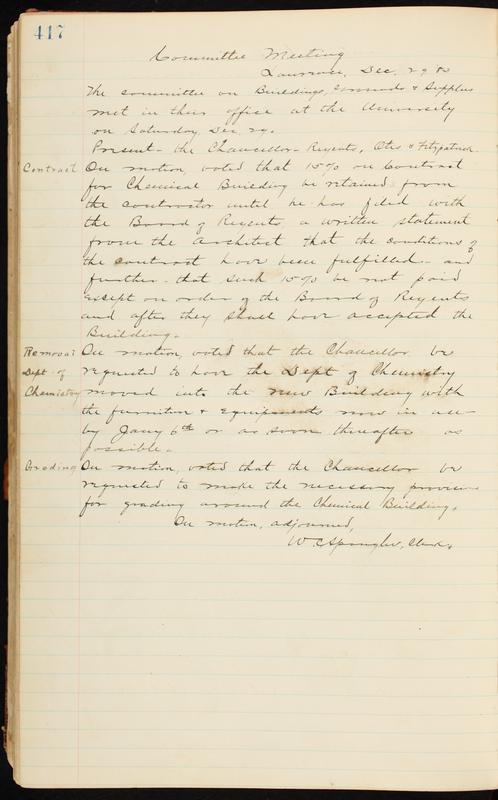 417
Committee Meeting
Lawrence, Dec. 29
The committee on Buildings, Grounds & Supplies
met in their office at the University
on Saturday, Dec. 29.
Present - the Chancellor - Regents, Otis & Fitzpatrick.
Contract On motion, voted that 15% on Contract
for Chemical Building be retained from
the contractor until he has filed with
the Board of Regents a written statement
from the architect that the conditions of
the contract have been fulfilled - and
further - that such 15% be not paid
except on order of the Board of Regents
and after they shall have accepted the
Building.
Removal On motion, voted that the Chancellor be
Dept of requested to have the Dept of Chemistry
Chemistry moved into the new Building with
the furniture & equipments now in use -
by Jany 6th or as soon thereafter as
possible.
Grading On motion, voted that the Chancellor be
requested to make the necessary provisions
for grading around the Chemical Building.
On motion, adjourned,
W. C. Spangler, Clerk.